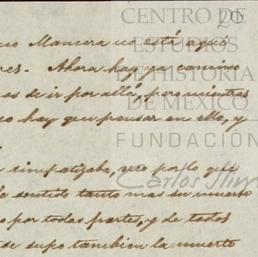 CENTRO DE
ESTUDIOS
DE HISTORIA
DE MEXICO
FUNDACIÓN
Carlos Slim
no Mancera no está aquí
res. Ahora hay ya camino
os de ir por allá, pero mientras
no hay que pensar en ello, y
simpatizaba, pero por lo que
sentido tanto mas su muerte
o por todas partes, y de todos
de supo tambien la muerte